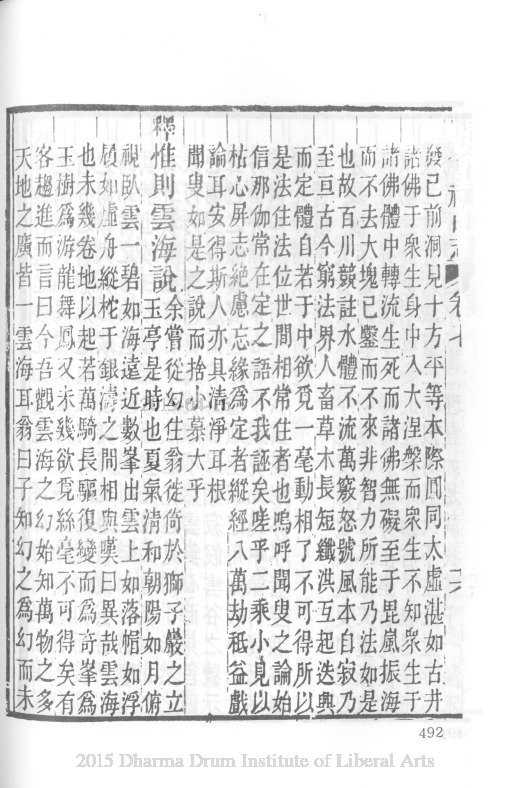 發已前洞見十方平等本際圓同太虛湛如古井
諸佛于衆生身中入大涅槃而衆生不知衆生于
諸佛體中轉流生死而諸佛無礙至于毘嵐振海
而不去大塊已鑿而不來非智力所能乃法如是
也故百川競註水體不流萬竅怒號風本自寂乃
至亘古今窮法界人畜草木長短纖洪互起迭興
而定體自若于中欲覓一毫動相了不可得所以
是法住法位世間相常住者也嗚呼聞叟之論始
信那伽常在定之語不我誣矣嗟乎二乘小見以
枯心屏志絕慮忘緣爲定者縱經八萬劫秪益戲
論耳安得斯人亦具清淨耳根
聞叟如是之說而捨小慕大乎
釋惟則雲海說余嘗從幻住翁徙倚於獅子巖之立
玉亭是時也夏氣清和朝陽如月俯
視臥雲一碧如海遠近數峯出雲上如落帽如浮
屐如虛舟縱柁于銀濤之間相與嘆曰異哉雲海
也未幾卷地以起若萬騎長驅復變而爲奇峯爲
玉樹爲游龍舞鳳又未幾欲覓絲毫不可得矣有
客趨進而言曰今吾觀雲海之幻始知萬物之多
天地之廣皆一雲海耳翁曰子知幻之爲幻而未
492
2015 Dharma Drum Institute of Liberal Arts